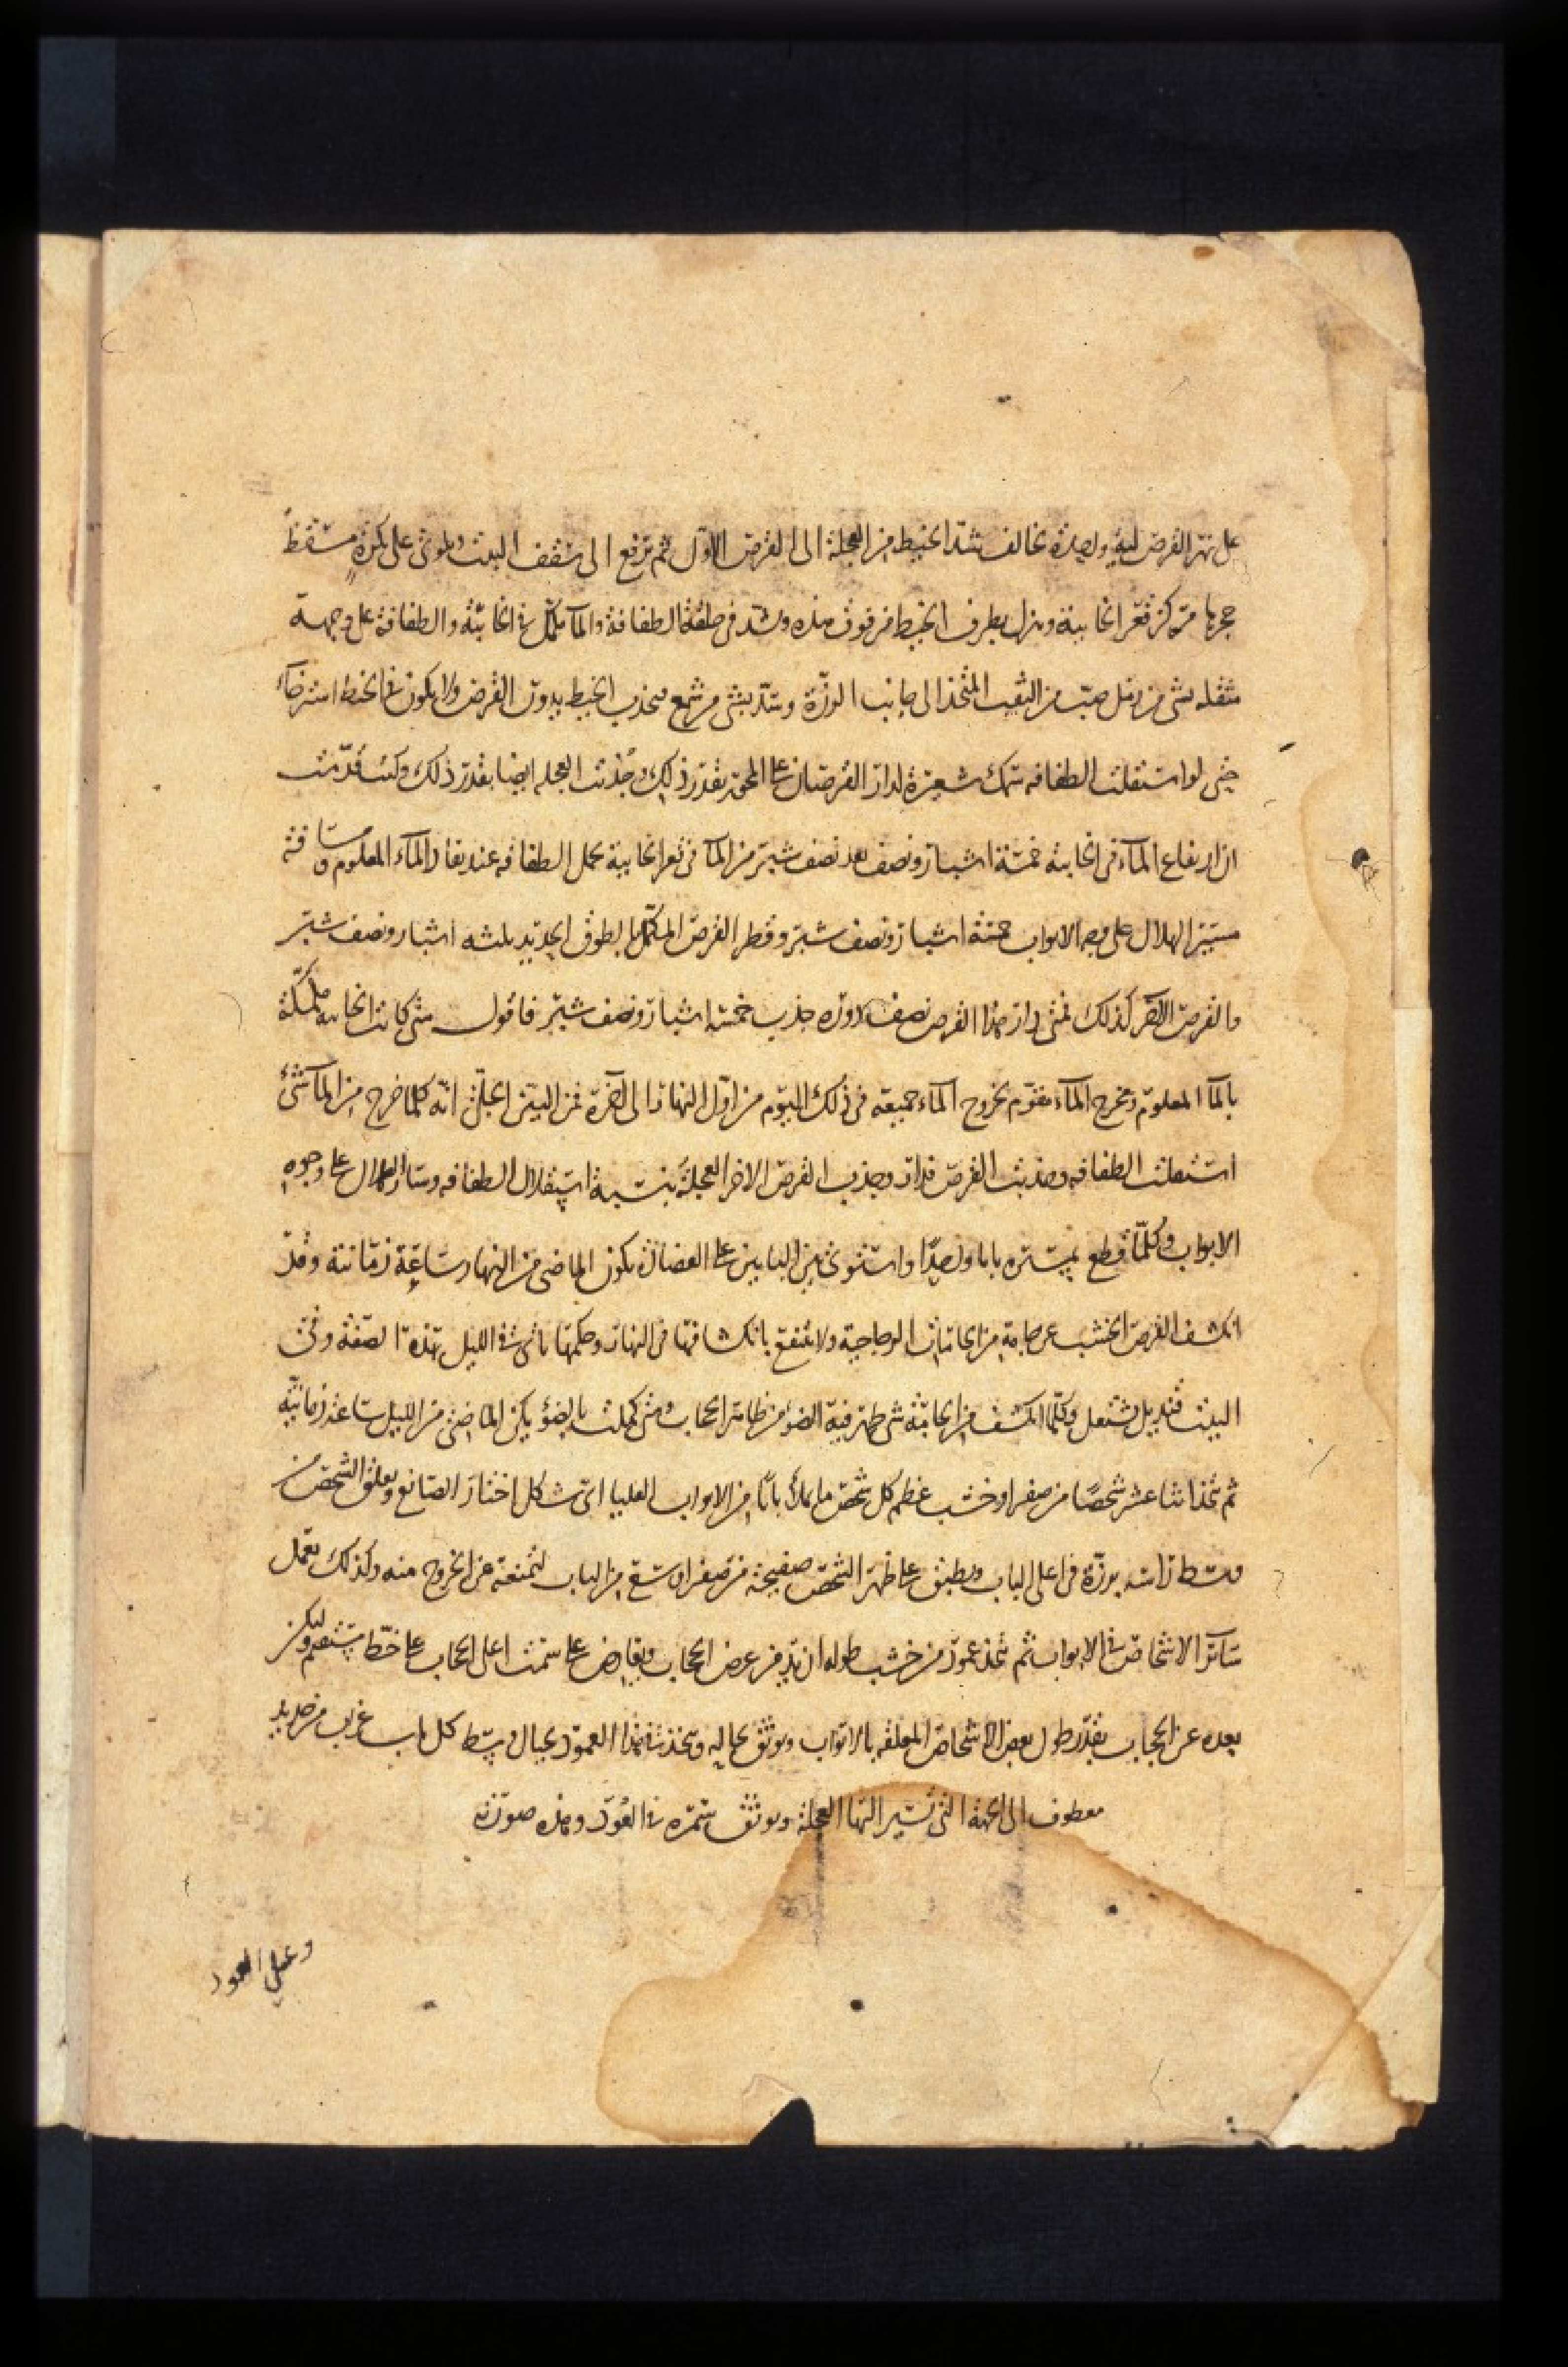 على نهر القرص لية واحدة تخالف شد الخيط من العجلة الى القرص الاول ثم يرفع الى سقف البيت ويلوى على بكرة مسقط
حجرها مركز قعر الخابية وينزل بطرف الخيط من فوق هذه ويشد فى حلقة الطفافة والمآ مكمل فى الخابية والطفافة على وجهه
مثقله بشى من رمل صب من الثقب المتخذ الى جانب الرزة وسد بشى من شمع يجذب الخيط يدور القرص ولا يكون فى الخيط استرخآ
حتى لو استفلت الطفافه سمك شعيرة لدار القرصان على المحور بقدر ذلك وجذبت العجله ايضا بقدر ذلك وكنت قدمت
ان ارتفاع المآء فى الخابية خمسة اشبار ونصف بعد نصف شبر من المآ فى قعر الخابية يحمل الطفافه عند نفاد المآء المعلوم ومسافة
مسير الهلال على وجه الابواب خمسة اشبار ونصف شبر وقطر القرص المكمل بالطوق الحديد ثلثه اشبار ونصف شبر
والقرص الاخر كذلك فمتى دار هذا القرص نصف دوره جذب خمسة اشبار ونصف شبر فاقول متى كانت الخابيه مملكة
بالمآ المعلوم ومخرج المآء مقوم بخروج المآء جميعه فى ذلك اليوم من اول النهار الى اخره فمن البين الجلى انه كلما خرج من المآ شئ
استفلت الطفافه وجذبت القرص فدار وجذب القرص الاخر العجلة بنسبة استفلال الطفافه وسار الهلال على وجوه
الابواب وكلما قطع بمسيره بابا واحدًا واستوى بين البابين على الفضلة يكون الماضى من النهار ساعة زمانية وقد
انكشف القرص الخشب عن جامة من الجامات الزجاجية ولا ينتفع بانكشافها فى النهار وحكمها يأتى فى الليل بهذه الصفة وفى
البيت قنديل يشتعل وكلما انكشف من الجامة شى ظهر فيه الضوء من ظاهر الحجاب ومتى كملت بالضوء يكن الماضى من الليل ساعة زمانية
ثم يتخذ اثنا عشر شخصًا من صفر او خشب عظم كل شخص ما يملأ بابًا من الابواب العليا اى شكل اختار الصانع ويعلق الشخص من
وسط راسه برزة فى اعلى الباب ويطبق على ظهر الشخص صفيحة من صفر اوسع من الباب لتمنعه من الخروج منه وكذلك يعمل
سآئر الاشخاص فى الابواب ثم يتخذ عمود من خشب طوله ازيد من عرض الحجاب ويعارض على سمت اعلى الحجاب على خط مستقيم وليكن
بعده عن الحجاب بقدر طول بعض الاشخاص المعلقه بالابواب ويوثق بحاله ويتخذ فى هذا العمود بحيال وسط كل باب غراب من حديد
معطوف الى الجهة التى تسير اليها العجلة ويوثق سمره فى العمود وهذه صورته
وعلى العمود